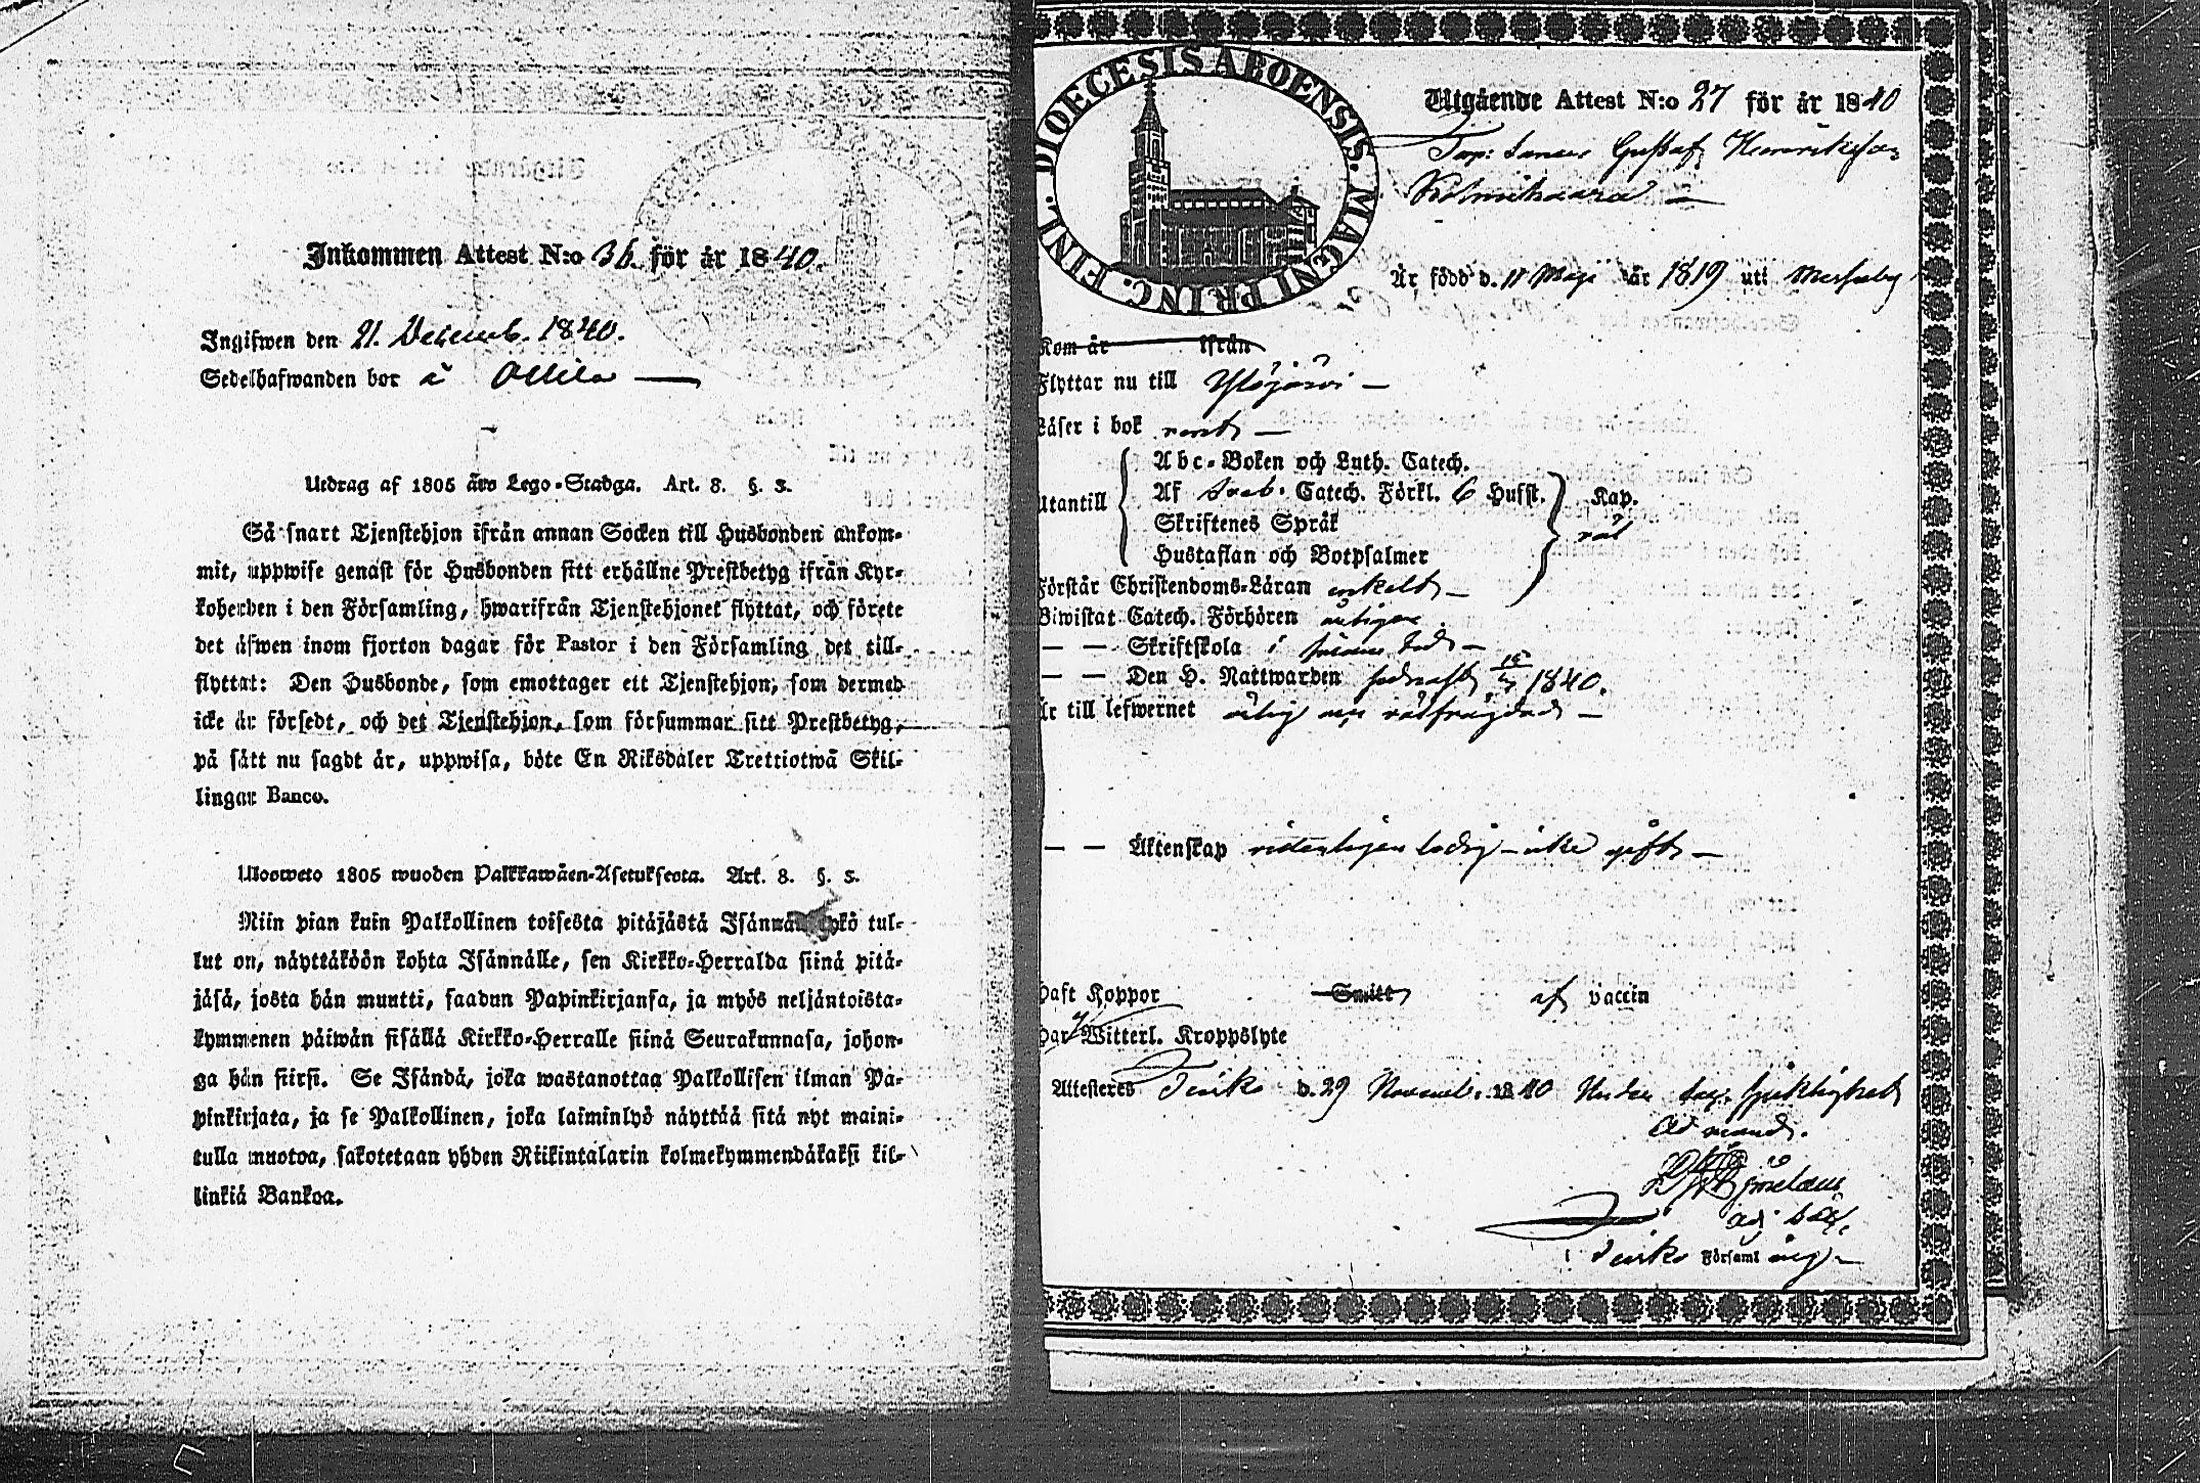 Inkommen Attest N:o 36 för år 1840.
Ingifwen den 21. Decemb. 1840.
Sedelhafwanden bor å
Utdrag af 1805 års Lego-Stadga. Art. 8. §. 3.
Så snart Tjenstehjon ifrån annan Socken till Husbonden ankom-
mit, uppwise genast för Husbonden sitt erhållne Prestbetyg ifrån Kyr-
koherden i den Församling, hwarifrån Tjenstehjonet flyttat, och förete
det äfwen inom fjorton dagar för Pastor i den Församling det till-
flyttat: Den Husbonde, som emottager ett Tjenstehjon, som dermed
icke är försedt, och det Tjenstehjon, som försummar sitt Prestbetyg,
på sätt nu sagdt är, uppwisa, böte En Riksdaler Trettiotwå Skil-
lingar Banco.
Uloosweto 1805 wuoden Palkkawäen-Asetuksesta. Art. 8. §. 3.
Niin pian kuin Palkollinen toisesta pitäjästä Isännän tykö tul-
lut on, näyttäköön kohta Isännälle, sen Kirkko-Herralda siinä pitä-
jäsä, josta hän muutti, saadun Papinkirjansa, ja myös neljäntoista-
kymmenen päiwän sisällä Kirkko-Herralle siinä Seurakunnasa, johon-
ga hän siirsi. Se Isändä, joka wastanottaa Palkollisen ilman Pa-
pinkirjata, ja se Palkollinen, joka laiminlyö näyttää sitä nyt maini-
tulla muotoa, sakotetaan yhden Riikintalarin kolmekymmendäkaksi kil-
linkiä Bankoa.
DIOECESIS ABOENSIS. MAGNI PRINC. FINL.
Utgående Attest N:o 27 för år 1840
Gustaf Henriksson
Kolmihaara
Är född d. 11 Maji år 1819 uti
Kom år ifrån
Flyttar nu till Ylöjärvi
Läser i bok
Abc-Boken och Luth. Catech.
Utantill Af Sveb. Catech. Förkl. 6 Hufst. Kap.
Skriftenes Språk
Hustaflan och Botpsalmer
Förstår Christendoms-Läran enkelt
Biwistat Catech. Förhören
— — Skriftskola i
— — Den H. Nattwarden sednast 1840.
Är till lefwernet ärlig och välfräjdad
— — Äktenskap viterligen ledig icke gift
Haft Koppor Smitt af vaccin
Har Witterl. Kroppslyte
Attesteras Teisko d. 29 Novemb. 1840 Under
i Teisko Församling